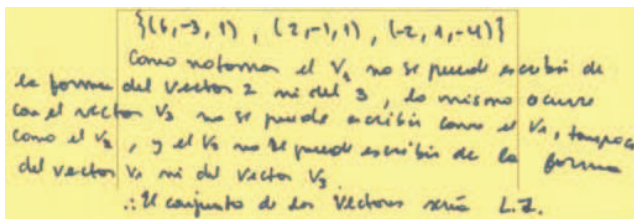 {(6,-3,1), (2,-1,1), (-2,1,-4)}
Como notamos el V1 no se puede escribir de
la forma del vector 2 ni del 3, lo mismo ocurre
con el vector V3 no se puede escribir como el V1, tampoco
como el V2, y el V2 no se puede escribir de la forma
del vector V1 ni del vector V3.
∴ El conjunto de los vectores sería L.I.